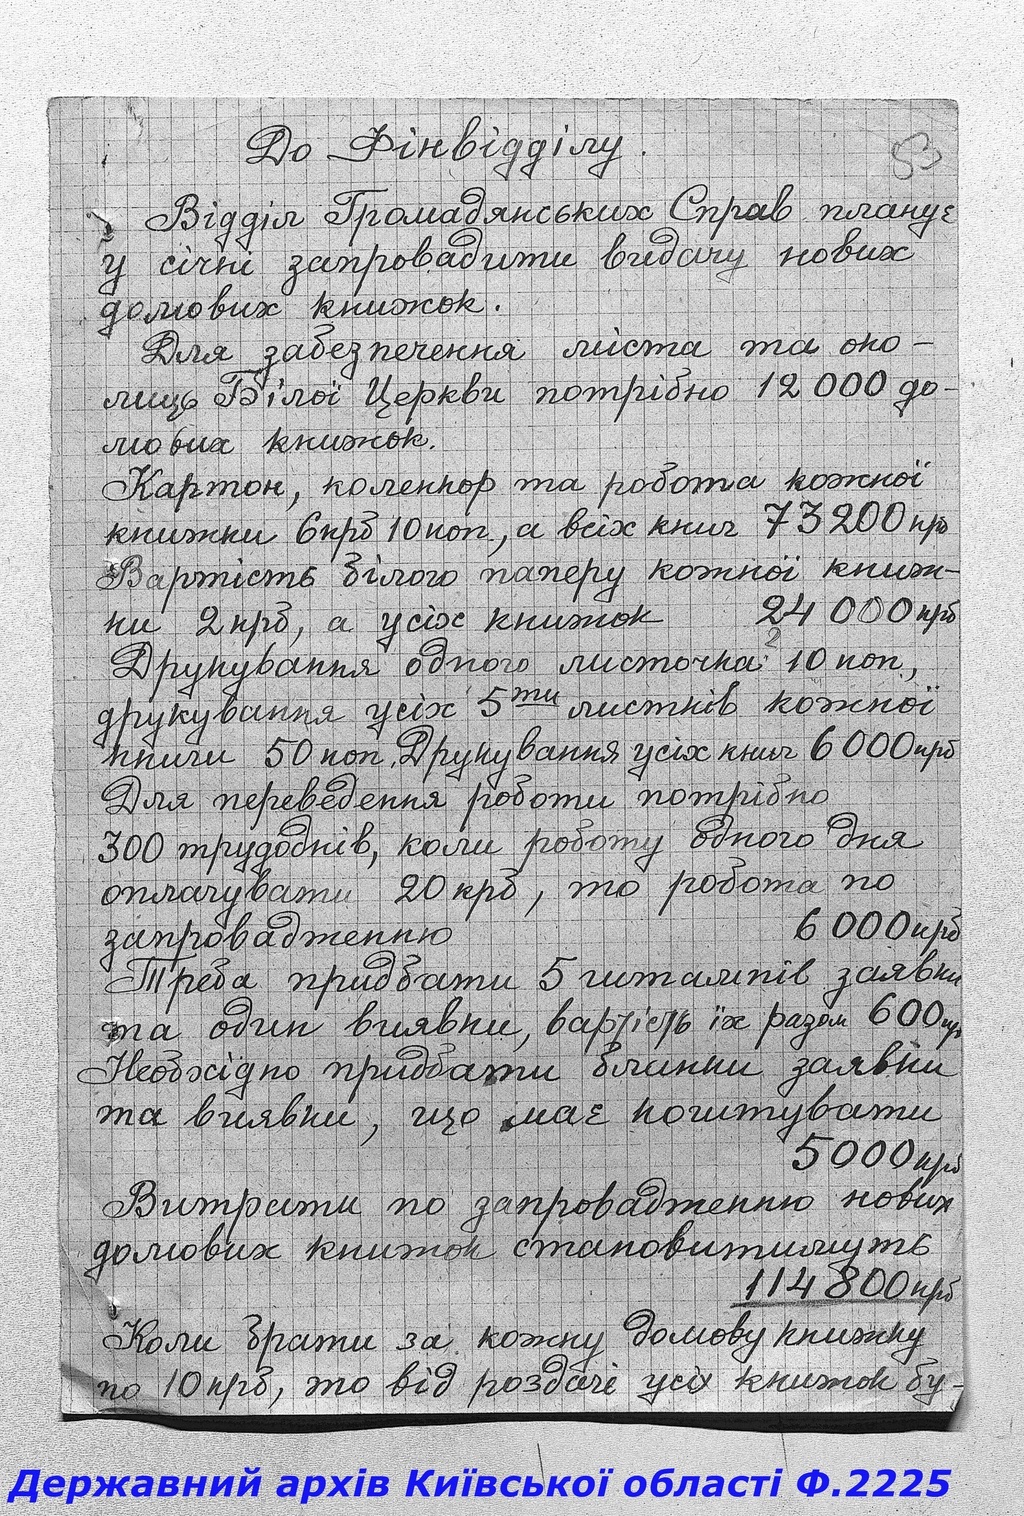 До Фінвідділу.
53
Відділ Громадянських Справ планує
у січні запровадити видачу нових
домових книжок.
Для забезпечення міста та око-
лиць Білої Церкви потрібно 12 000 до-
мових книжок.
Картон, коленкор та робота кожної
книжки 6 крб 10 коп, а всіх книг 73200 крб
Вартість білого паперу кожної книж-
ки 2 крб, а усіх книжок 24 000 крб
Друкування одного листочка 10 коп,
друкування усіх 5ти листків кожної
книги 50 коп. Друкування усіх книг 6 000 крб
Для переведення роботи потрібно
300 трудоднів, коли роботу одного дня
оплачувати 20 крб, то робота по
запровадженню 6 000 крб
Треба придбати 5 штампів заявки
та один виявки, вартість їх разом 600 крб
Необхідно придбати бланки заявки
та виявки, що має коштувати
5000 крб
Витрати по запровадженню нових
домових книжок становитимуть
114 800 крб
Коли брати за кожну домову книжку
по 10 крб, то від роздачі усіх книжок бу-
Державний архів Київської області Ф.2225